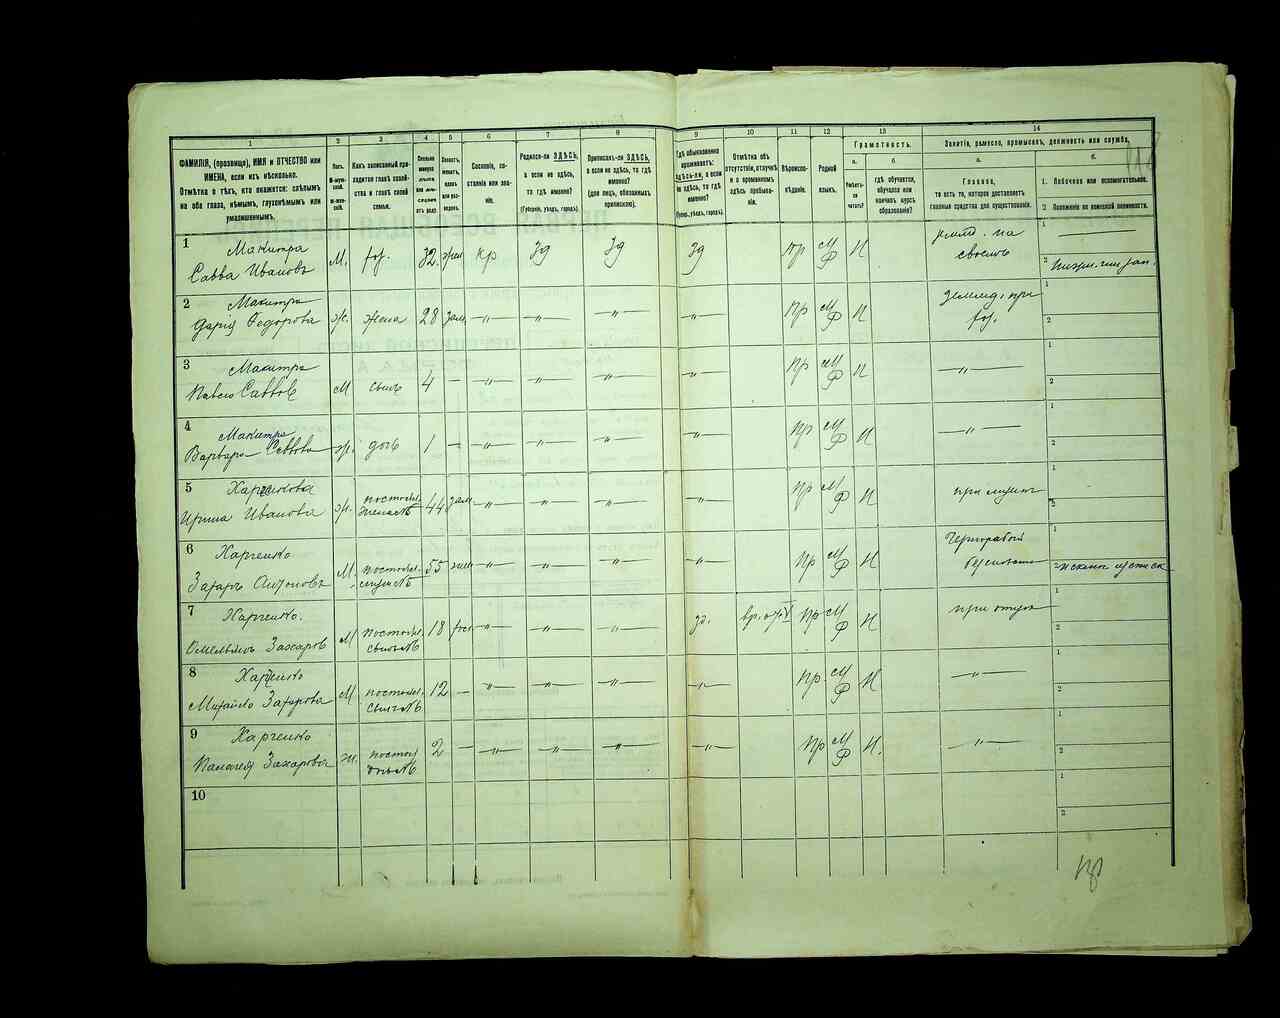 1 2 3 4 5 6 7 8 9 10 11 12 13 14
ФАМИЛІЯ, (прозвище), ИМЯ и ОТЧЕСТВО или ИМЕНА, если ихъ нѣсколько.
Отмѣтка о тѣхъ, кто окажется: слѣпымъ на оба глаза, нѣмымъ, глухонѣмымъ или умалишеннымъ.
Полъ.
М-мужской.
Ж-женскій.
Какъ записанный приходится главѣ хозяйства и главѣ своей семьи.
Сколько минуло лѣтъ или мѣсяцевъ отъ роду.
Холостъ, женатъ, вдовъ или разведенъ.
Сословіе, состояніе или званіе.
Родился-ли ЗДѢСЬ, а если не здѣсь, то гдѣ именно?
(Губернія, уѣздъ, городъ).
Приписанъ-ли ЗДѢСЬ, а если не здѣсь, то гдѣ именно?
(для лицъ, обязанныхъ припискою).
Гдѣ обыкновенно проживаетъ: ЗДѢСЬ-ли, а если не здѣсь, то гдѣ именно?
(Губер., уѣздъ, городъ).
Отмѣтка объ отсутствіи, отлучкѣ и о временномъ здѣсь пребываніи.
Вѣроисповѣданіе.
Родной языкъ.
Грамотность.
а. б.
Умѣетъ-ли читать?
гдѣ обучается, обучался или кончилъ курсъ образованія?
Занятіе, ремесло, промыселъ, должность или служба.
а. б.
Главное,
то есть то, которое доставляетъ главныя средства для существованія.
1. Побочное или вспомогательное.
2 Положеніе по воинской повинности.
1 Макитра
Савва Ивановъ М. хоз. 32. жен Кр Зд Зд Зд Пр М Р Н на своемъ 1 2
2 Макитра
Дарія Федорова Ж. жена 28 зам. —"— —"— —"— —"— Пр М Р Н землед. при хоз. 1 2
3 Макитра
Саввов М сынъ 4 — —"— —"— —"— —"— Пр М Р Н —"— 1 2
4 Макитра
Варвара Саввова Ж. дочь 1 — —"— —"— —"— —"— Пр М Р Н —"— 1 2
5 Харченкова
Ирина Иванова Ж. 44 зам —"— —"— —"— —"— Пр М Р Н при мужѣ 1 2
6 Харченко
Захаръ Антоновъ М. 55 жен —"— —"— —"— —"— Пр М Р Н 1 2
7 Харченко.
Омельянъ Захаров М сынъ 18 хол —"— —"— —"— зд. Пр М Р Н при отцѣ 1 2
8 Харченко
Михайло Захарова М сынъ 12 — —"— —"— —"— —"— Пр М Р Н —"— 1 2
9 Харченко
Палагея Захарова Ж. 2 — —"— —"— —"— —"— Пр М Р Н. —"— 1 2
10 1 2